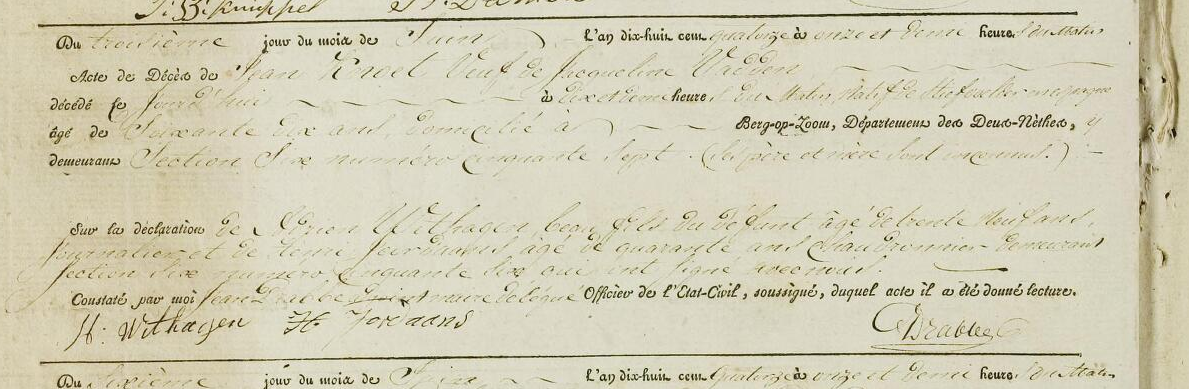 J: B: Knippel
Du troisième jour du mois de Juin l'an dix-huit cent quatorze à onze et demi heures du Matin
Acte de Décès de Jean Knoet Veuf de Jacqueline Vadden
décédé ce jourd'hui à dix et demi heures du Matin, Natif de
âgé de Soixante dix ans, domicilié à Berg-op-Zoom, Département des Deux-Nèthes, y
demeurant Section Six numéro cinquante Sept (Ses père et mère Sont inconnus.)
Sur la déclaration de Adrien Withagen, beau fils du défunt âgé de trente Neuf ans,
journalier et de Henri Jordaans âgé de quarante ans Chaudronnier demeurant
Section Six numéro cinquante Six qui ont Signé avec nous.
Constaté par moi Jean Drabbe maire délégué Officier de l'Etat-Civil, soussigné, duquel acte il a été donné lecture.
A: Withagen H Jordaans Drabbe
Du Sixième jour du mois de Juin l'an dix-huit cent quatorze à onze et demi heures du Matin